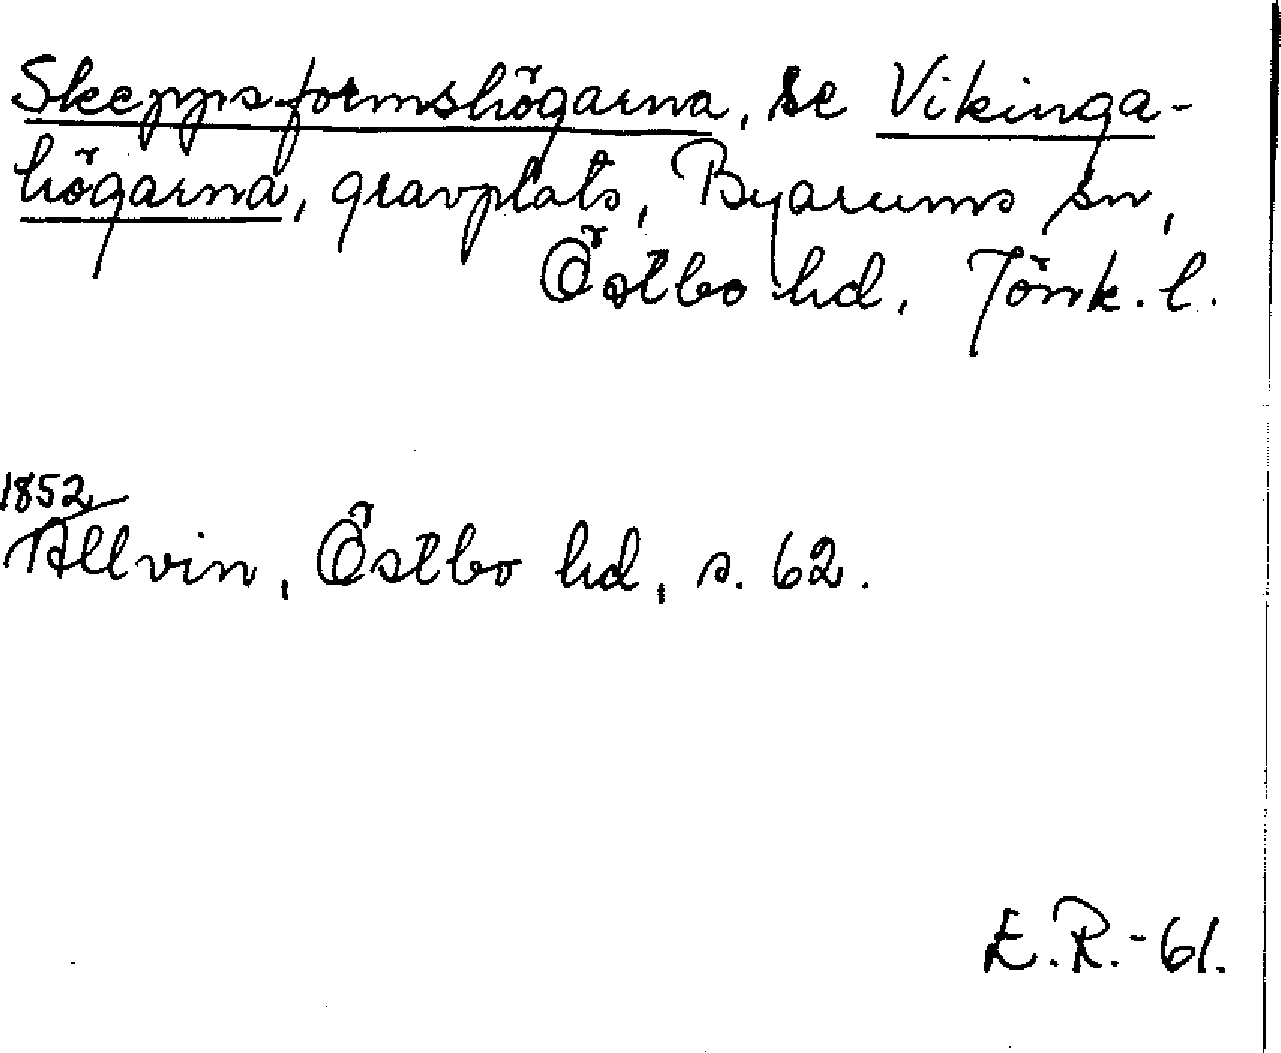 Skeppsformshögarna, se Vikinga-
högarna, gravplats, Byarums sn,
Östbo hd, Jönk. l.
1852
Allvin, Östbo hd, s. 62.
E.R.-61.